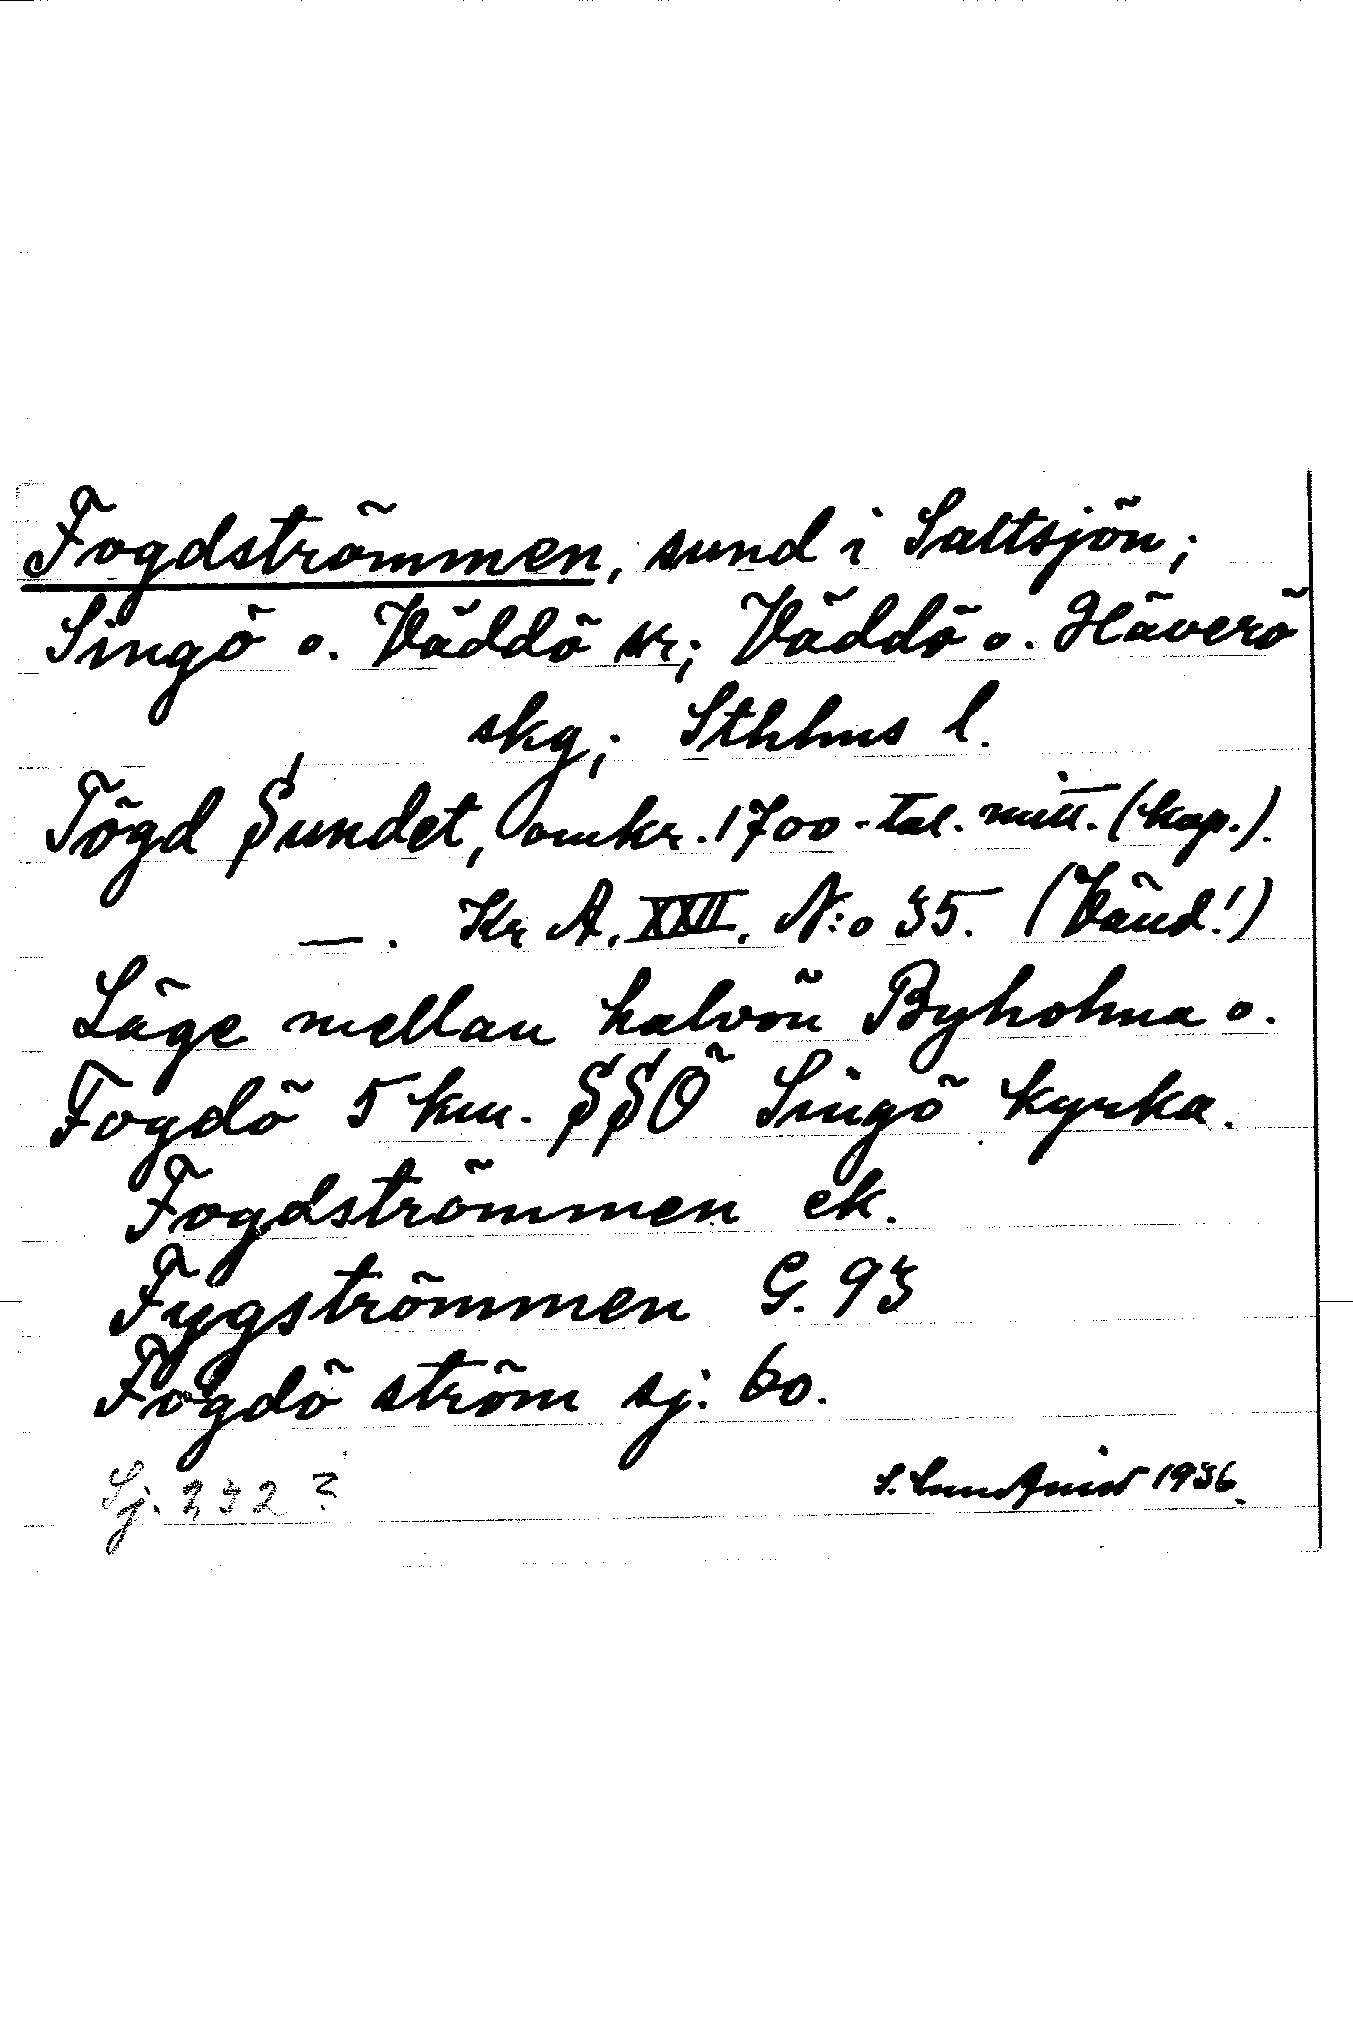 Fogdströmmen, sund i Saltsjön;
Singö o. Väddö kr; Väddö o. Häverö
skg; Sthlms l.
Fögd Sundet, omkr. 1700-tal. mitt. (kop.).
—. Kr A, XXII, N:o 35. (Vänd!)
Läge mellan halvön Byholma o.
Fogdö 5 km. SSÖ Singö kyrka.
Fogdströmmen ek.
Fygströmmen G. 93
Fogdö ström sj. 60.
Sj. 232 ?
S. Lundquist 1936.